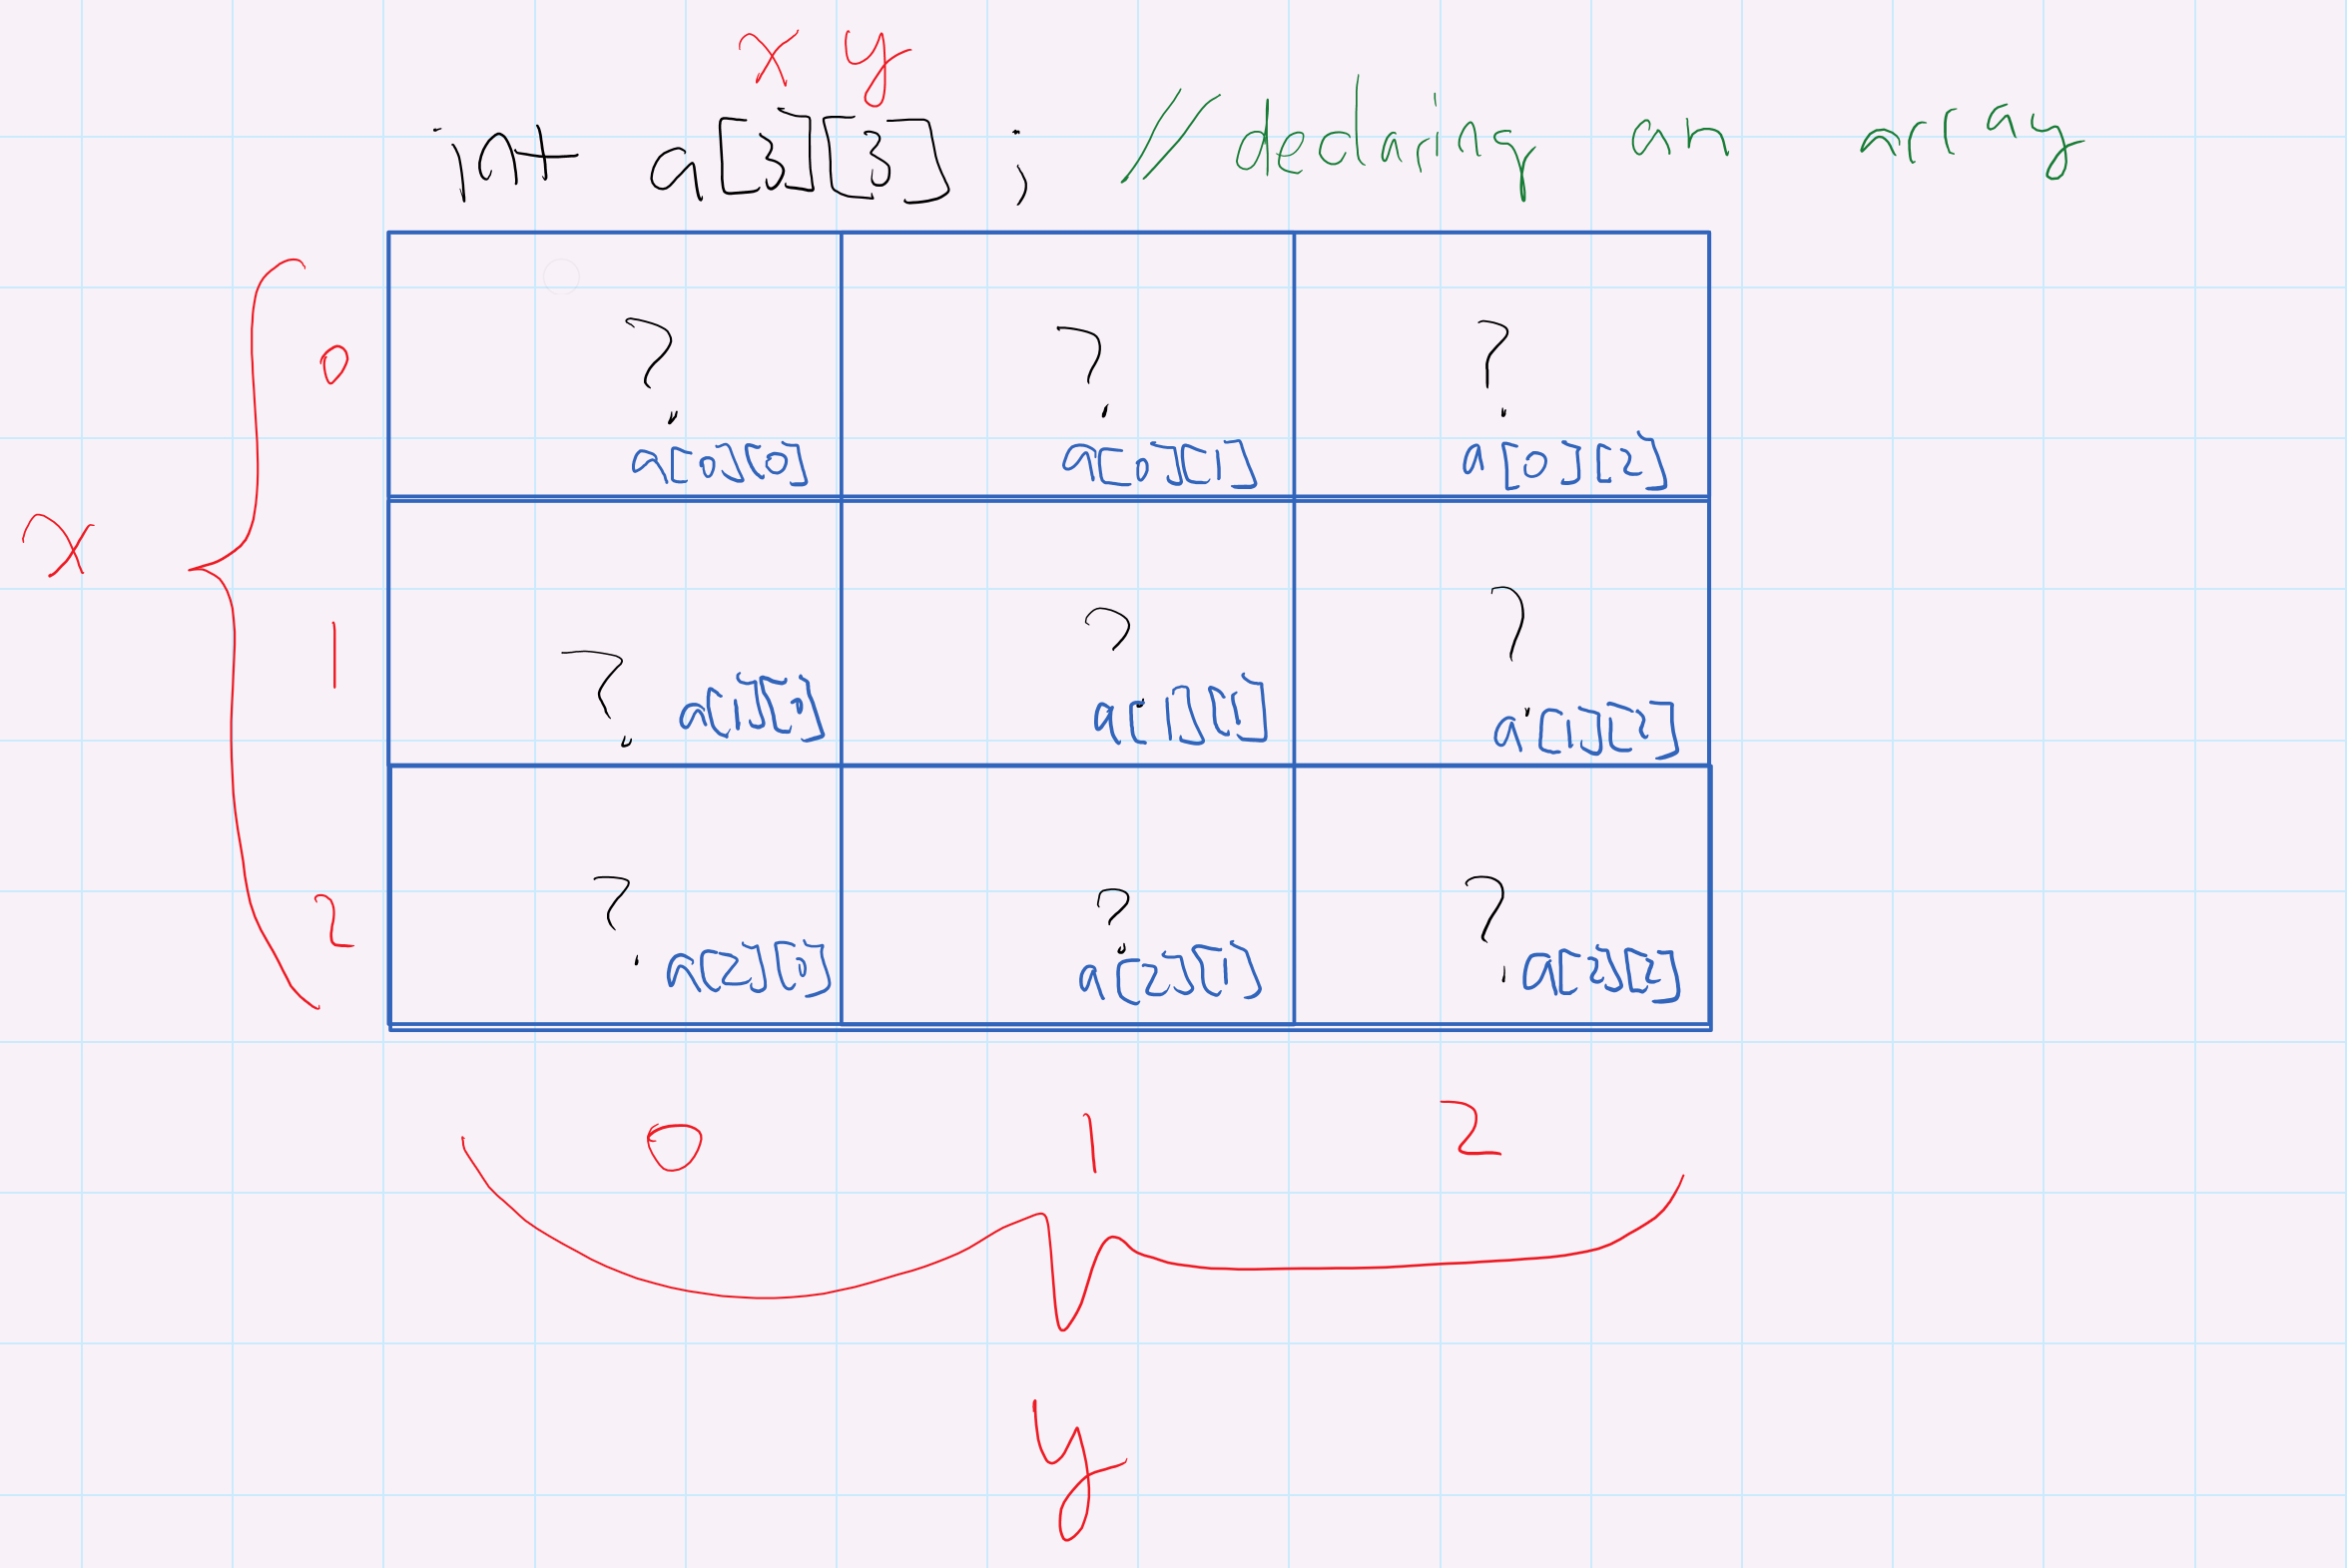 x y
int a[3][3] ; // declaring an array
0 ? ? ?
a[0][0] a[0][1] a[0][2]
x
1 ? ? ?
a[1][0] a[1][1] a[1][2]
2 ? ? ?
a[2][0] a[2][1] a[2][2]
0 1 2
y